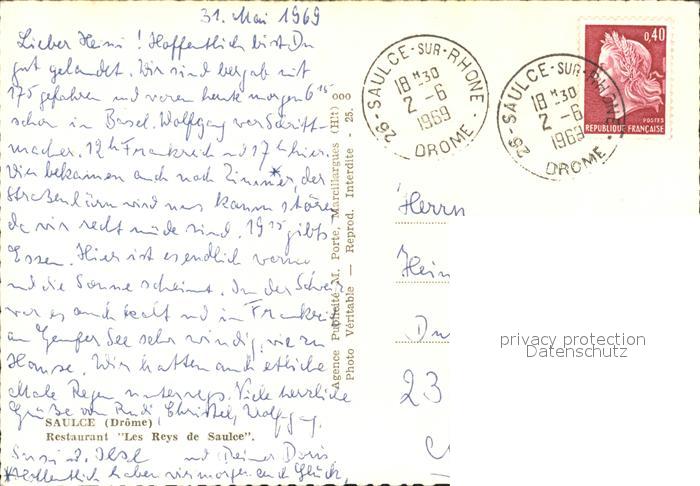 31. Mai 1969
Lieber Heini! Hoffentlich bist Du
gut gelandet. Wir sind bergab mit
175 gefahren und waren heute morgen 6 15
schon in Basel. Wolfgang war Schritt-
macher. 12 h Frankreich und 17 h hier.
Wir bekamen auch noch Zimmer, der
Straßenlärm wird uns kaum stören
da wir recht müde sind. 19 15 gibts
Essen. Hier ist es endlich warm
und die Sonne scheint. In der Schweiz
war es auch kalt und in Frankreich
am Genfer See sehr windig, wie zu
Hause. Wir hatten auch etliche
Male Regen unterwegs. Viele herzliche
Grüße von Rudi, Christel, Wolfgang.
SAULCE (Drôme)
Restaurant "Les Reys de Saulce".
Susi u. Ilse und Deiner Doris
Hoffentlich haben wir morgen auch Glück,
Agence Publicité M. Porte, Marcillargues (Hlt) 000
Photo Véritable — Reprod. Interdite 25.
26 - SAULCE-SUR-RHONE
18 H 30
2 - 6
1969
DROME
26 - SAULCE-SUR-RHONE
18 H 30
2 - 6
1969
DROME
0,40
POSTES
REPUBLIQUE FRANÇAISE
Herrn
Hein
Du
23
privacy protection
Datenschutz